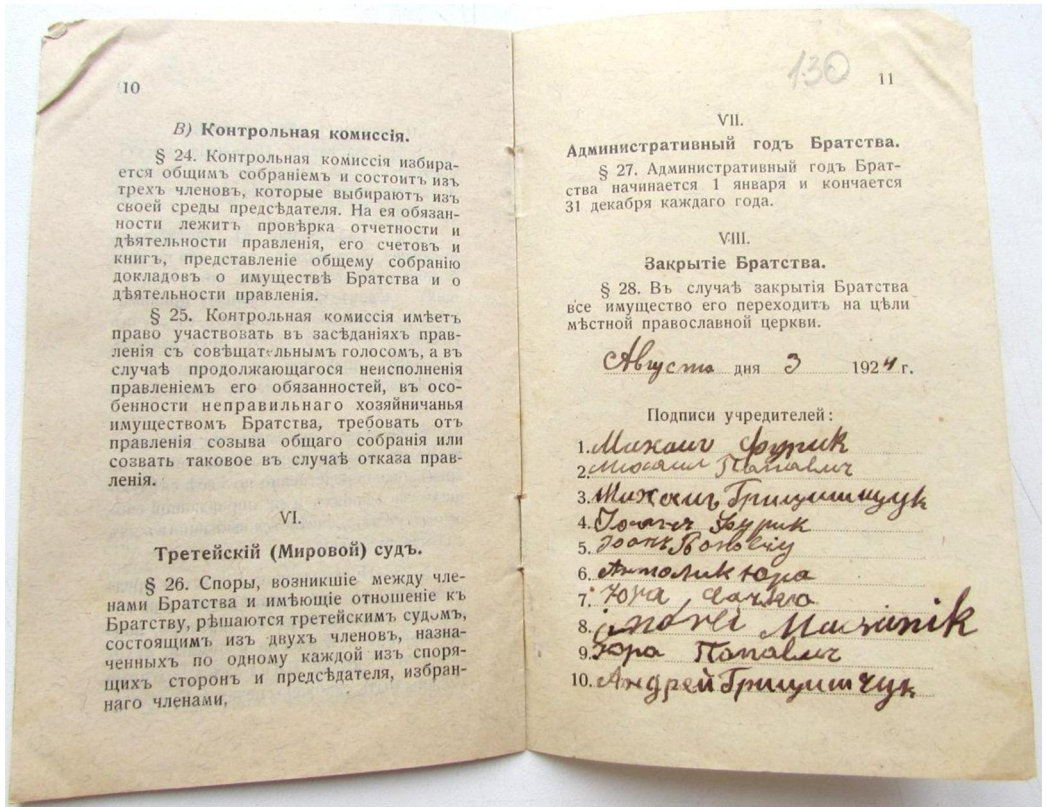 10
В) Контрольная комиссія.
§ 24. Контрольная комиссія избира-
ется общимъ собраніемъ и состоитъ изъ
трехъ членовъ, которые выбираютъ изъ
своей среды предсѣдателя. На ея обязан-
ности лежитъ провѣрка отчетности и
дѣятельности правленія, его счетовъ и
книгъ, представленіе общему собранію
докладовъ о имуществѣ Братства и о
дѣятельности правленія.
§ 25. Контрольная комиссія имѣетъ
право участвовать въ засѣданіяхъ прав-
ленія съ совѣщательнымъ голосомъ, а въ
случаѣ продолжающагося неисполненія
правленіемъ его обязанностей, въ осо-
бенности неправильнаго хозяйничанья
имуществомъ Братства, требовать отъ
правленія созыва общаго собранія или
созвать таковое въ случаѣ отказа прав-
ленія.
VI.
Третейскій (Мировой) судъ.
§ 26. Споры, возникшіе между чле-
нами Братства и имѣющіе отношеніе къ
Братству, рѣшаются третейскимъ судомъ,
состоящимъ изъ двухъ членовъ, назна-
ченныхъ по одному каждой изъ споря-
щихъ сторонъ и предсѣдателя, избран-
наго членами,
130
11
VII.
Административный годъ Братства.
§ 27. Административный годъ Брат-
ства начинается 1 января и кончается
31 декабря каждаго года.
VIII.
Закрытіе Братства.
§ 28. Въ случаѣ закрытія Братства
все имущество его переходитъ на цѣли
мѣстной православной церкви.
Августа дня 3 1924 г.
Подписи учредителей:
1. Михаил Фурик
2. Михаил Папавич
3. Михаилъ Грицишчук
4. Фурик
5.
6. Юра
7. Юра
8.
9. Юра Папавич
10. Андрей Грицишчук